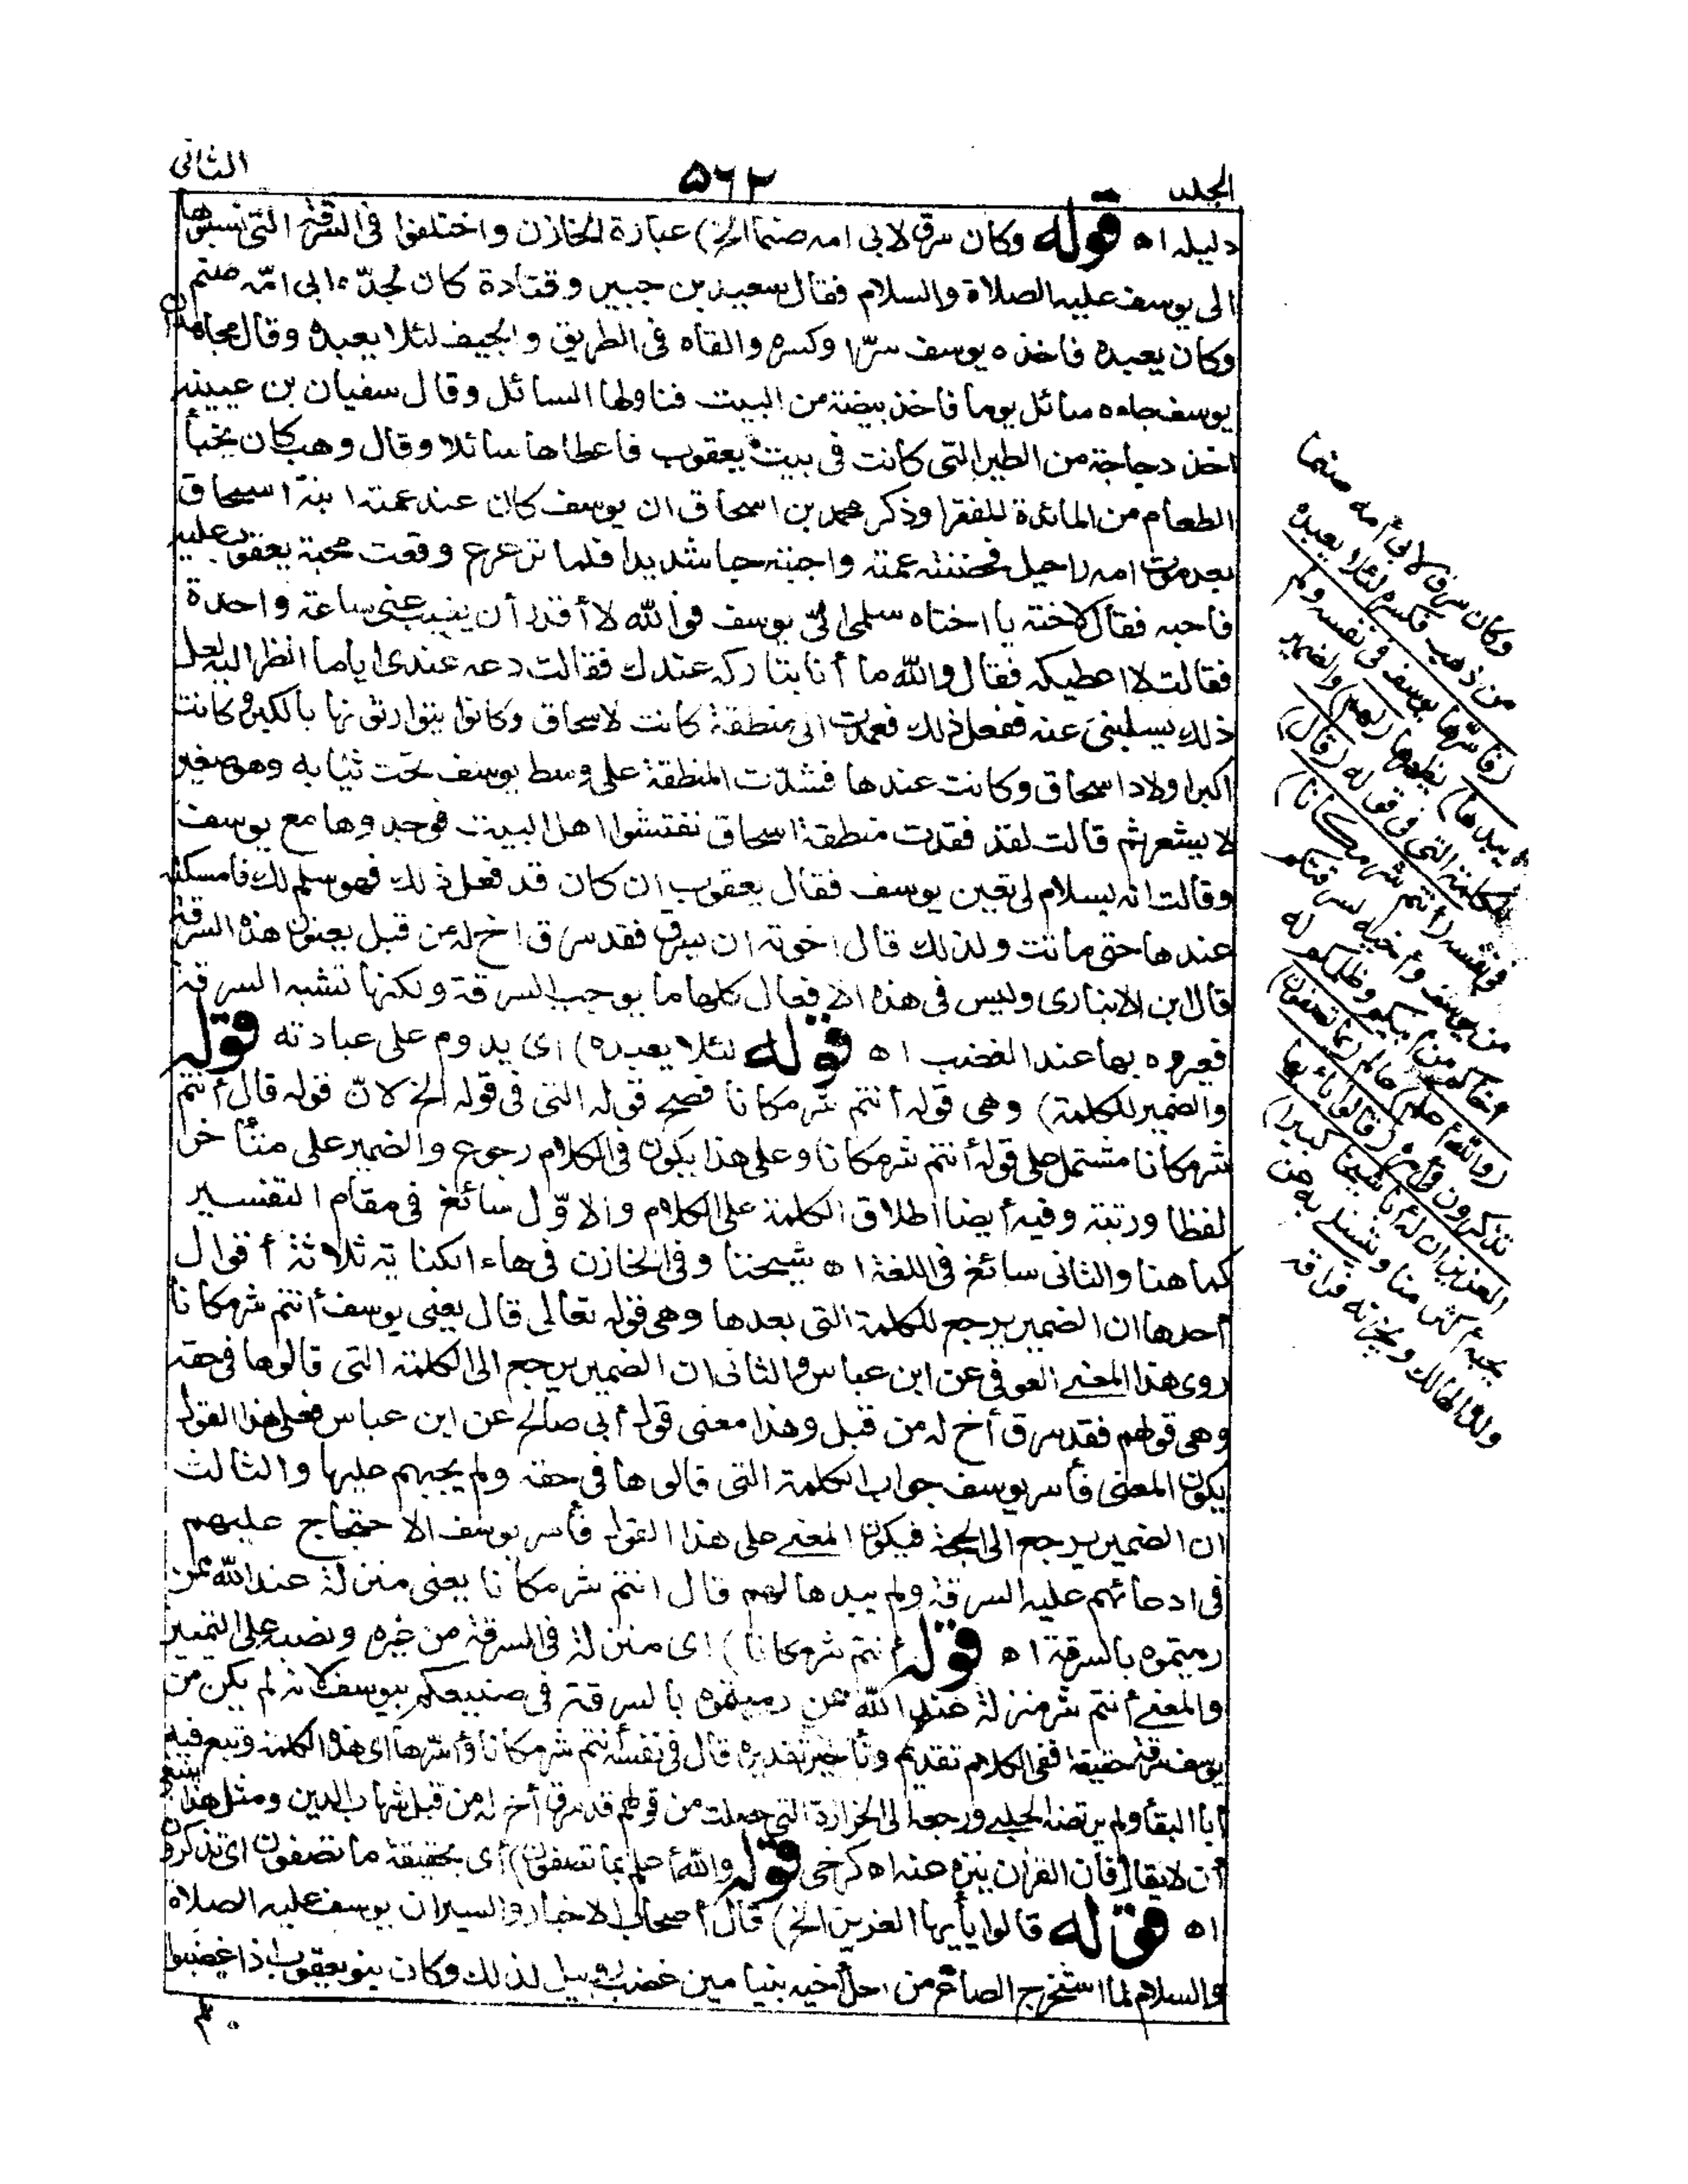 الجلد
۵۶۲
الثانى
دليله اه قوله وكان سرق لابى امه صنما الخ) عبارة الخازن واختلفوا فى السرقة التى نسبوها
الى يوسف عليه الصلاة والسلام فقال سعيد بن جبير وقتادة كان لجدّه ابى امّه صنم
وكان يعبده فاخذه يوسف سرّا وكسره والقاه فى الطريق والجيف لئلا يعبده وقال مجاهد ان
يوسف جاءه سائل يوما فاخذ بيضة من البيت فناولها السائل وقال سفيان بن عيينه
اخذ دجاجة من الطير التى كانت فى بيت يعقوب فاعطاها سائلا وقال وهب كان يخبأ
الطعام من المائدة للفقرا وذكر محمد بن اسحاق ان يوسف كان عند عمته ابنة اسحاق
بعد موت امه راحيل فحضنته عمته واحبته حبا شديدا فلما ترعرع ووقعت محبة يعقوب عليه
فاحبه فقال لاخته يا اختاه سلمى الىّ يوسف فوالله لا أقدر أن يغيب عنى ساعة واحدة
فقالت لا اعطيكه فقال والله ما أنا بتاركه عندك فقالت دعه عندى اياما انظر اليه لعل
ذلك يسلينى عنه ففعل ذلك فعمدت الى منطقة كانت لاسحاق وكانوا يتوارثونها بالكبر وكانت
اكبر اولاد اسحاق وكانت عندها فشدّت المنطقة على وسط يوسف تحت ثيابه وهو صغير
لا يشعر ثم قالت لقد فقدت منطقة اسحاق ففتشوا اهل البيت فوجدوها مع يوسف
وقالت انه ليسلام لى تعين يوسف فقال يعقوب ان كان قد فعل ذلك فهو سلم لك فامسكته
عندها حتى ماتت ولذلك قال اخوته ان يسرق فقد سرق اخ له من قبل يعنون هذه السرقة
قال ابن الانبارى وليس فى هذه الافعال كلها ما يوجب السرقة ولكنها تشبه السرقة
فعيروه بها عند الغضب اه قوله لئلا يعبده) اى يدوم على عبادته قوله
والضمير للكلمة) وهى قوله أنتم شر مكانا فصح قوله التى فى قوله الخ لانّ قوله قال أنتم
شر مكانا مشتمل على قوله أنتم شر مكانا وعلى هذا يكون فى الكلام رجوع والضمير على متأخر
لفظا ورتبة وفيه أيضا اطلاق الكلمة على الكلام والاوّل سائغ فى مقام التفسير
كما هنا والثانى سائغ فى اللغة اه شيخنا وفى الخازن فى هاء الكناية ثلاثة أقوال
أحدها ان الضمير يرجع للكلمة التى بعدها وهى قوله تعالى قال يعنى يوسف أنتم شر مكانا
روى هذا المعنى العوفى عن ابن عباس والثانى ان الضمير يرجع الى الكلمة التى قالوها فى حقه
وهى قولهم فقد سرق أخ له من قبل وهذا معنى قول أبى صالح عن ابن عباس فعلى هذا القول
يكون المعنى فأسر يوسف جواب الكلمة التى قالوها فى حقه ولم يجبهم عليها والثالث
ان الضمير يرجع الى الحجة فيكون المعنى على هذا القول فأسر يوسف الاحتجاج عليهم
فى ادعائهم عليه السرقة ولم يبدها لهم قال انتم شر مكانا يعنى منزلة عند الله ممن
رميتموه بالسرقة اه قوله أنتم شر مكانا) اى منزلة فى السرقة من غيره ونصبه على التمييز
والمعنى أنتم شر منزلة عند الله ممن رميتموه بالسرقة فى صنيعكم بيوسف لانه لم يكن من
يوسف سرقة حقيقة ففى الكلام تقديم وتأخير تقديره قال فى نفسه أنتم شر مكانا وأسرّها اى هذه الكلمة وتبع فيه
أبا البقاء ولم يرتضه الحلبى ورجعه الى الحزازة التى حصلت من قولهم قد سرق أخ له من قبل شهاب الدين ومثل هذا ينبغى
أن لا يقال فان القرآن ينزه عنه اه كرخى قوله والله أعلم بما تصفون) أى بحقيقة ما تصفون اى تذكرون
اه قوله قالوا يأيها العزيز الخ) قال أصحاب الاخبار والسير ان يوسف عليه الصلاة
والسلام لما استخرج الصاع من رحل أخيه بنيامين غضب روبيل لذلك وكان بنو يعقوب اذا غضبوا
لم
وكان سرق لابى أمه صنما
من ذهب فكسره لئلا يعبده
(فأسرّها يوسف فى نفسه ولم
يبدها) يظهرها (لهم) والضمير
للكلمة التى فى قوله (قال)
فى نفسه (أنتم شر مكانا)
من يوسف وأخيه لسرقتكم
أخاكم من أبيكم وظلمكم له
(والله أعلم) عالم (بما تصفون)
تذكرون فى أمره (قالوا يأيها
العزيز ان له أبا شيخا كبيرا)
يحبه أكثر منا ويتسلى به عن
ولده الهالك ويحزنه فراقه